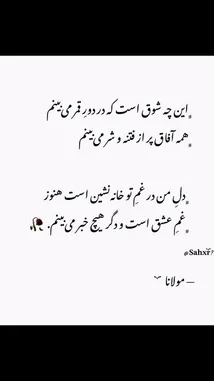 این چه شوق است که در دورِ قمر می بینم
همه آفاق پر از فتنه و شر می بینم
دلِ من در غمِ تو خانه نشین است هنوز
غمِ عشق است و دگر هیچ خبر می بینم. 🥀
— مولانا